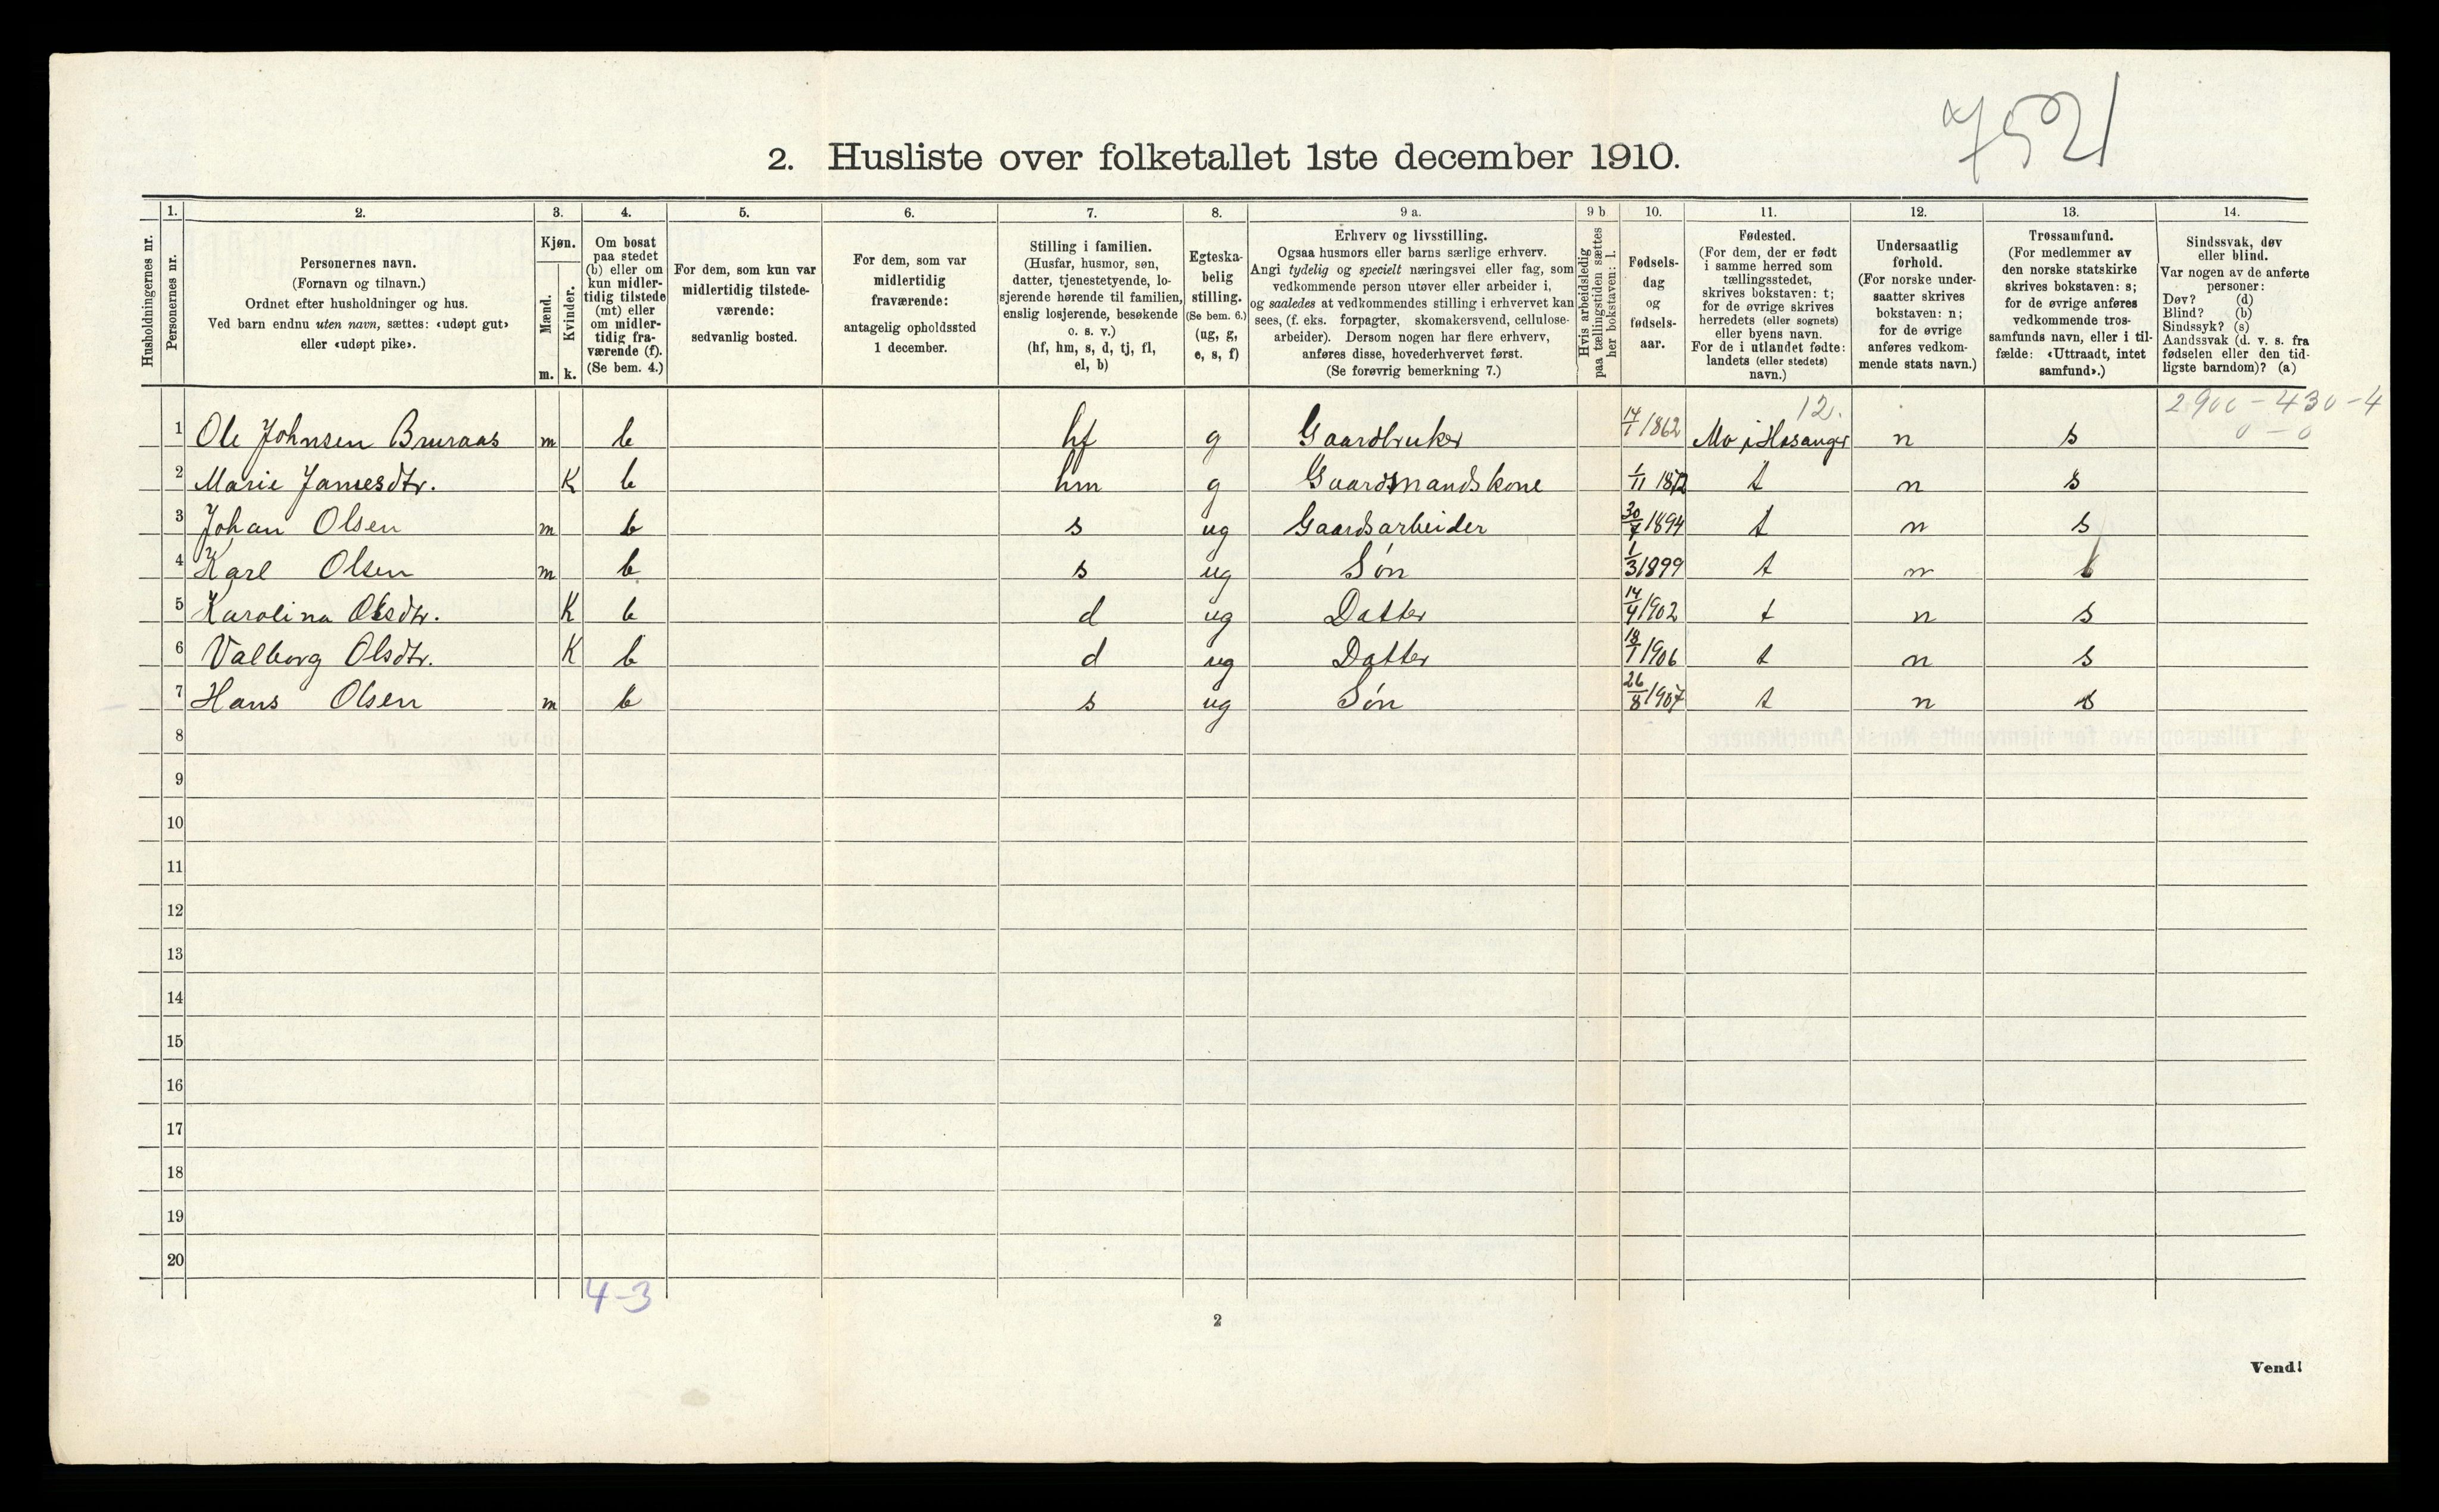 7521
2. Husliste over folketallet 1ste december 1910.
Husholdningernes nr.
1. Personernes nr.
2. Personernes navn.
(Fornavn og tilnavn.)
Ordnet efter husholdninger og hus.
Ved barn endnu uten navn, sættes: «udøpt gut»
eller «udøpt pike».
3. Kjøn.
Mænd. m.
Kvinder. k.
4. Om bosat
paa stedet
(b) eller om
kun midler-
tidig tilstede
(mt) eller
om midler-
tidig fra-
værende (f).
(Se bem. 4.)
5. For dem, som kun var
midlertidig tilstede-
værende:
sedvanlig bosted.
6. For dem, som var
midlertidig
fraværende:
antagelig opholdssted
1 december.
7. Stilling i familien.
(Husfar, husmor, søn,
datter, tjenestetyende, lo-
sjerende hørende til familien,
enslig losjerende, besøkende
o. s. v.)
(hf, hm, s, d, tj, fl,
el, b)
8. Egteska-
belig
stilling.
(Se bem. 6.)
(ug, g,
e, s, f)
9 a. Erhverv og livsstilling.
Ogsaa husmors eller barns særlige erhverv.
Angi tydelig og specielt næringsvei eller fag, som
vedkommende person utøver eller arbeider i,
og saaledes at vedkommendes stilling i erhvervet kan
sees, (f. eks. forpagter, skomakersvend, cellulose-
arbeider). Dersom nogen har flere erhverv,
anføres disse, hovederhvervet først.
(Se forøvrig bemerkning 7.)
9 b Hvis arbeidsledig
paa tællingstiden sættes
her bokstaven: l.
10. Fødsels-
dag
og
fødsels-
aar.
11. Fødested.
(For dem, der er født
i samme herred som
tællingsstedet,
skrives bokstaven: t;
for de øvrige skrives
herredets (eller sognets)
eller byens navn.
For de i utlandet fødte:
landets (eller stedets)
navn.)
12. Undersaatlig
forhold.
(For norske under-
saatter skrives
bokstaven: n;
for de øvrige
anføres vedkom-
mende stats navn.)
13. Trossamfund.
(For medlemmer av
den norske statskirke
skrives bokstaven: s;
for de øvrige anføres
vedkommende tros-
samfunds navn, eller i til-
fælde: «Uttraadt, intet
samfund».)
14. Sindssvak, døv
eller blind.
Var nogen av de anførte
personer:
Døv? (d)
Blind? (b)
Sindssyk? (s)
Aandssvak (d. v. s. fra
fødselen eller den tid-
ligste barndom)? (a)
12. 2900-430-4
0-0
1 Ole Johnsen Bruraas m b hf g Gaardbruker 14/1 1862 Mo i Hosanger n s
2 Marie Jamesdtr. K b hm g Gaardmandskone 1/11 1872 t n s
3 Johan Olsen m b s ug Gaardsarbeider 30/7 1894 t n s
4 Karl Olsen m b s ug Søn 1/3 1899 t n s
5 Karolina Olsdtr. K b d ug Datter 14/4 1902 t n s
6 Valborg Olsdtr. K b d ug Datter 18/1 1906 t n s
7 Hans Olsen m b s ug Søn 26/8 1907 t n s
8
9
10
11
12
13
14
15
16
17
18
19
20
4-3
2
Vend!